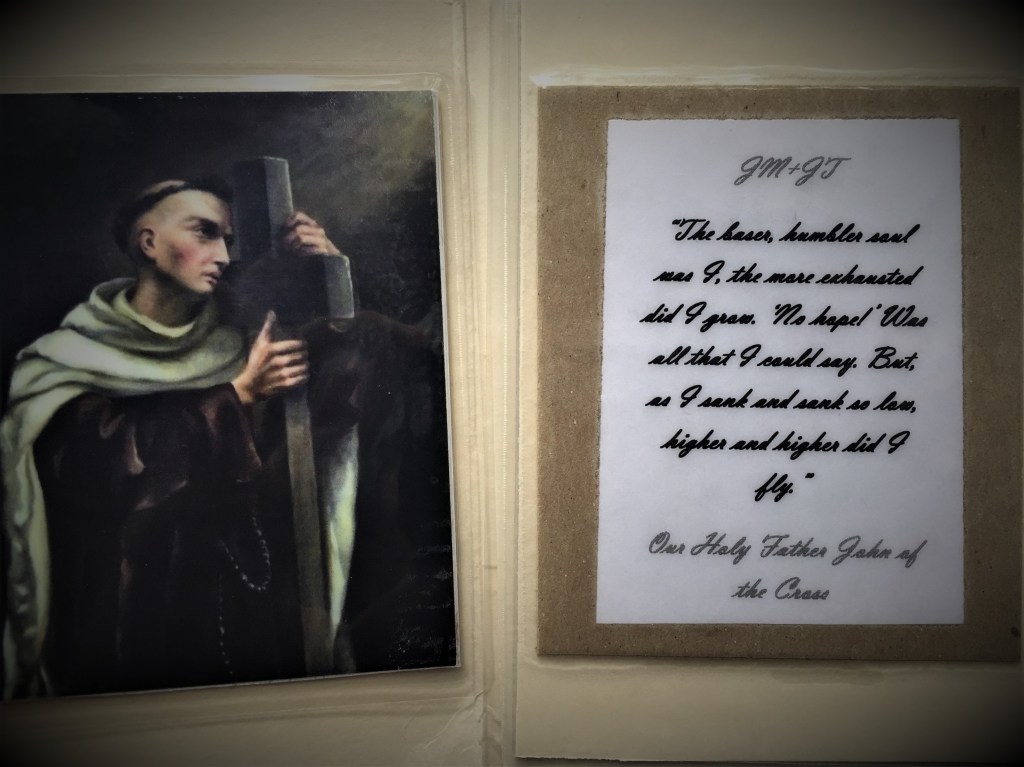 JM+JT
"The baser, humbler soul
was I, the more exhausted
did I grow. 'No hope!' Was
all that I could say. But,
as I sank and sank so low,
higher and higher did I
fly."
Our Holy Father John of
the Cross